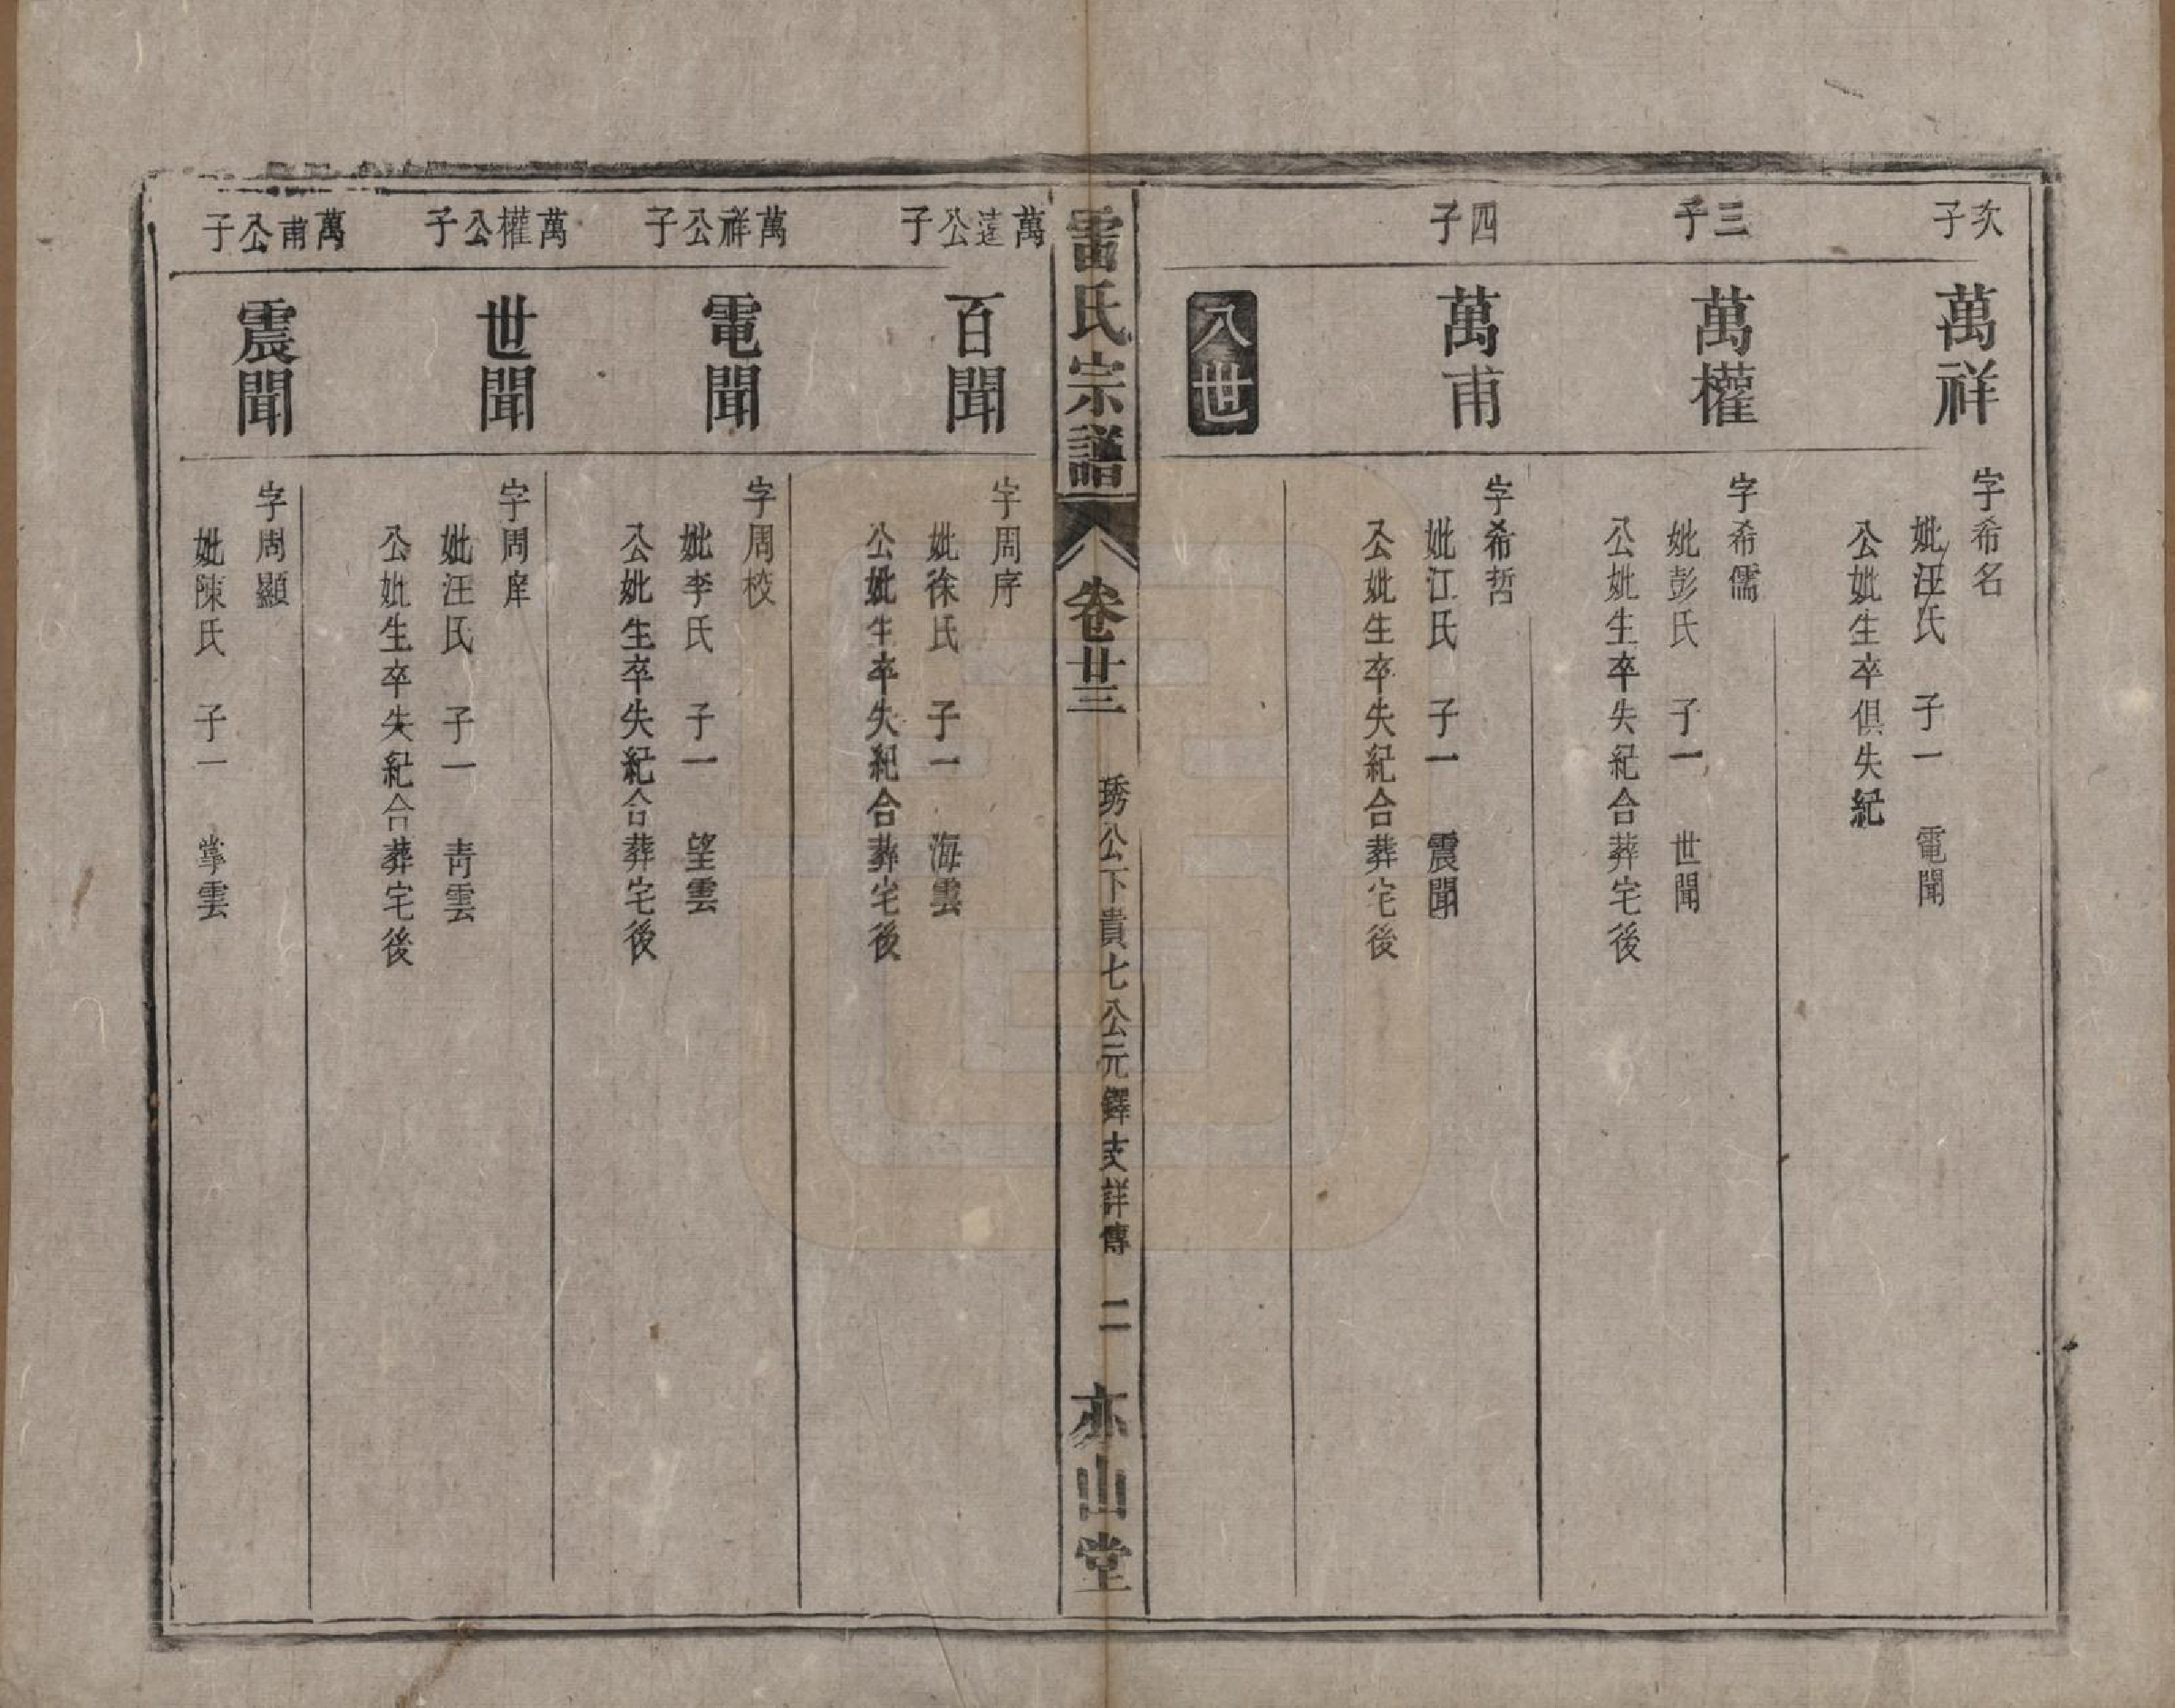 次子
萬祥
字希名
妣汪氏　子一　電聞
公妣生卒俱失紀
三子
萬權
字希儒
妣彭氏　子一　世聞
公妣生卒失紀合葬宅後
四子
萬甫
字希哲
妣江氏　子一　震聞
公妣生卒失紀合葬宅後
八世
雷氏宗譜
卷廿三
琇公下貴七公元鐸支詳傳　二
亦山堂
萬遠公子
百聞
字周序
妣徐氏　子一　海雲
公妣生卒失紀合葬宅後
萬祥公子
電聞
字周校
妣李氏　子一　望雲
公妣生卒失紀合葬宅後
萬權公子
世聞
字周庠
妣汪氏　子一　青雲
公妣生卒失紀合葬宅後
萬甫公子
震聞
字周顯
妣陳氏　子一　掌雲